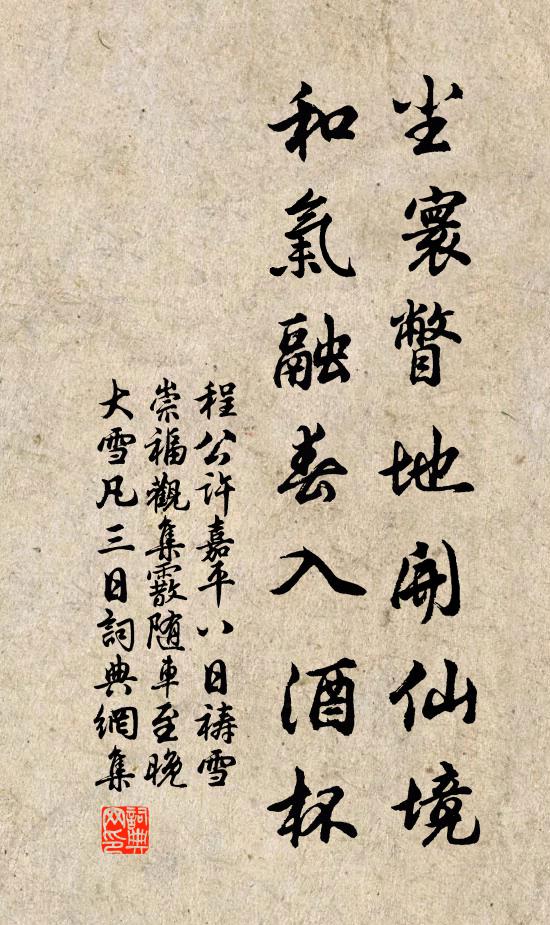 尘寰瞥地開仙境
和氣融春入酒杯
程公許嘉平八日禱雪
崇福觀集霰随車至晚
大雪凡三日詞典網集
詞典网印